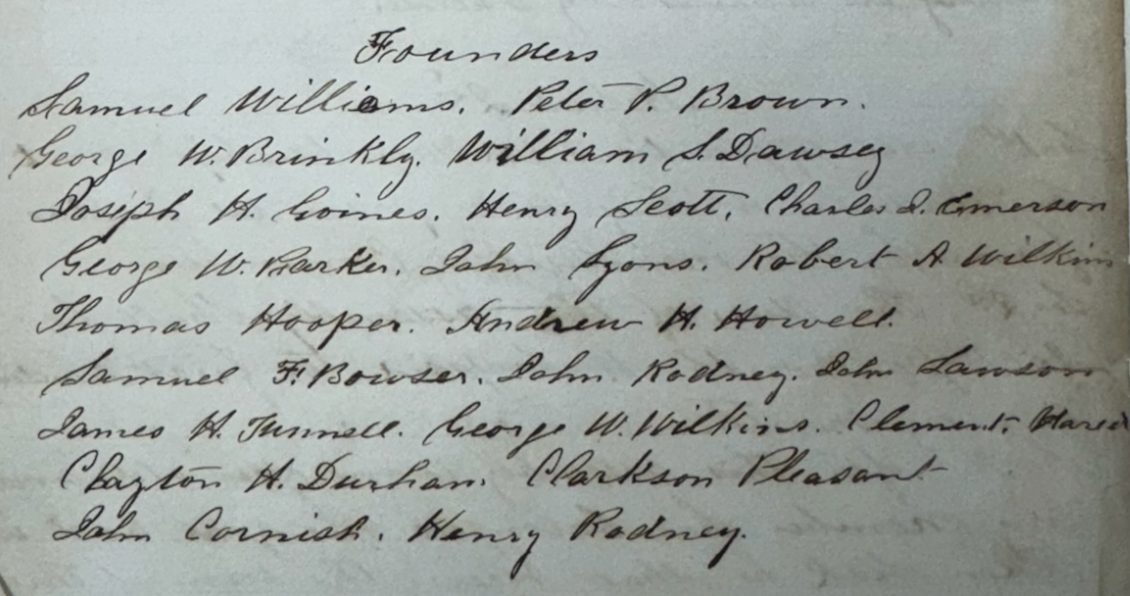 Founders
Samuel Williams. Peter P. Brown.
George W. Brinkly. William S. Dawsey
Joseph H. Goines. Henry Scott. Charles I. Emerson
George W. Barker. John Lyons. Robert A Wilkins
Thomas Hooper. Andrew H. Howell.
Samuel F. Bowser. John Rodney. John Lawson
James H. Tunnell. George W. Wilkins. Clement.
Clayton H. Durham. Clarkson Pleasant.
John Cornish. Henry Rodney.